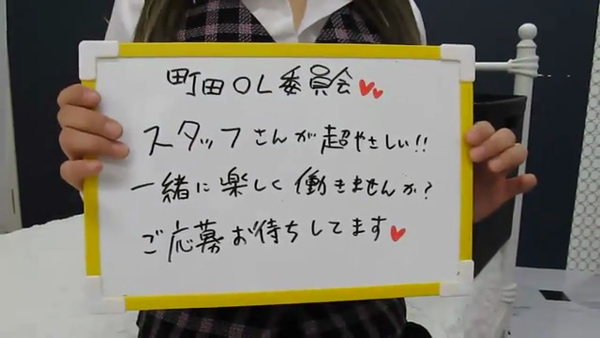 町田OL委員会♥♥
スタッフさんが超やさしい!!
一緒に楽しく働きませんか?
ご応募お待ちしてます♥